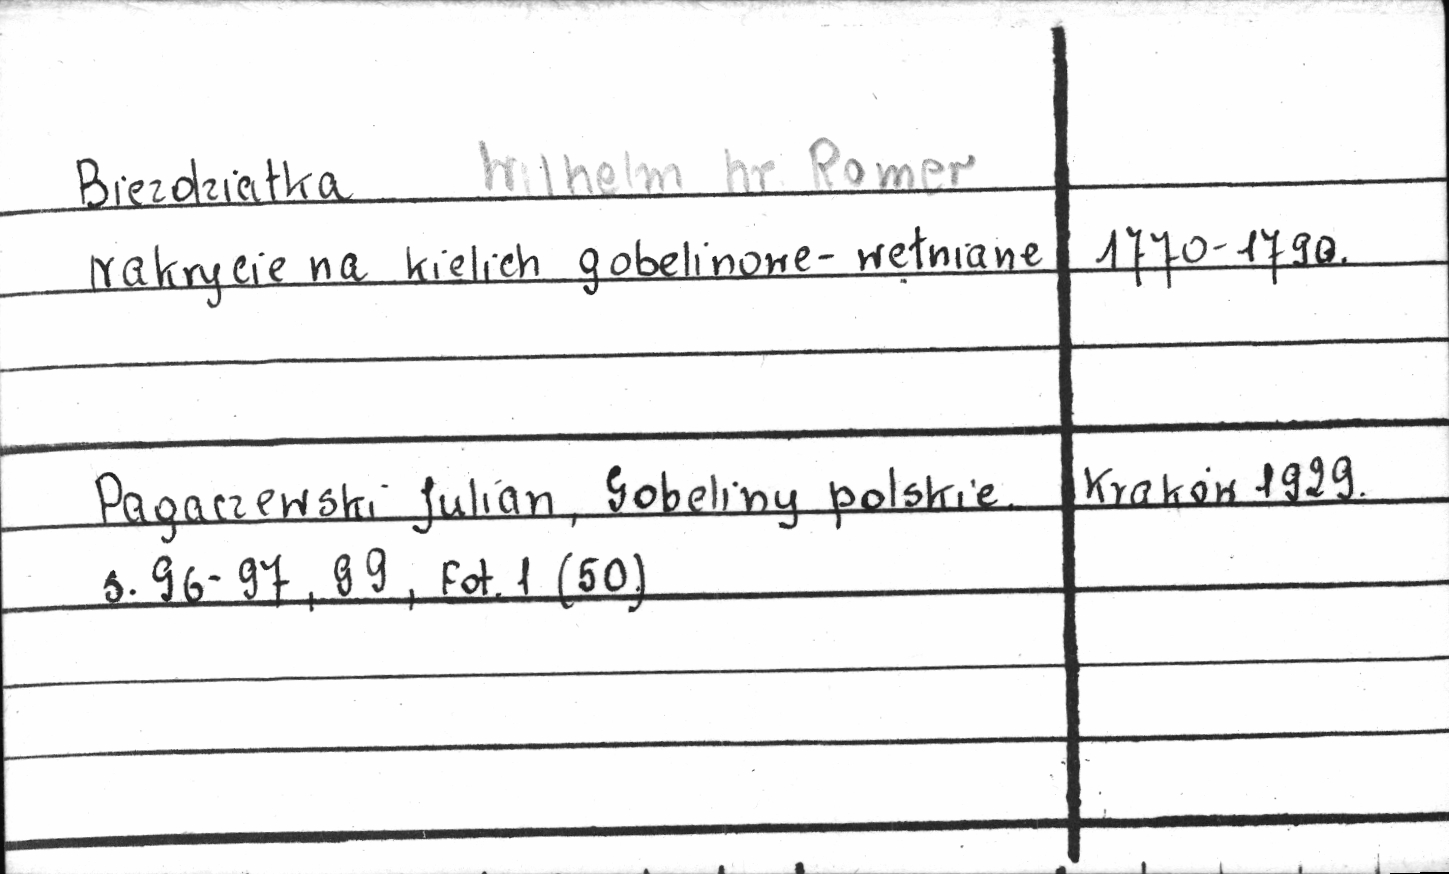 Biezdziatka Wilhelm hr. Romer
nakrycie na kielich gobelinowe-wełniane 1770-1790.
Pagaczewski Julian, Gobeliny polskie. Kraków 1929.
s. 96-97, 99, Fot. 1 (50)